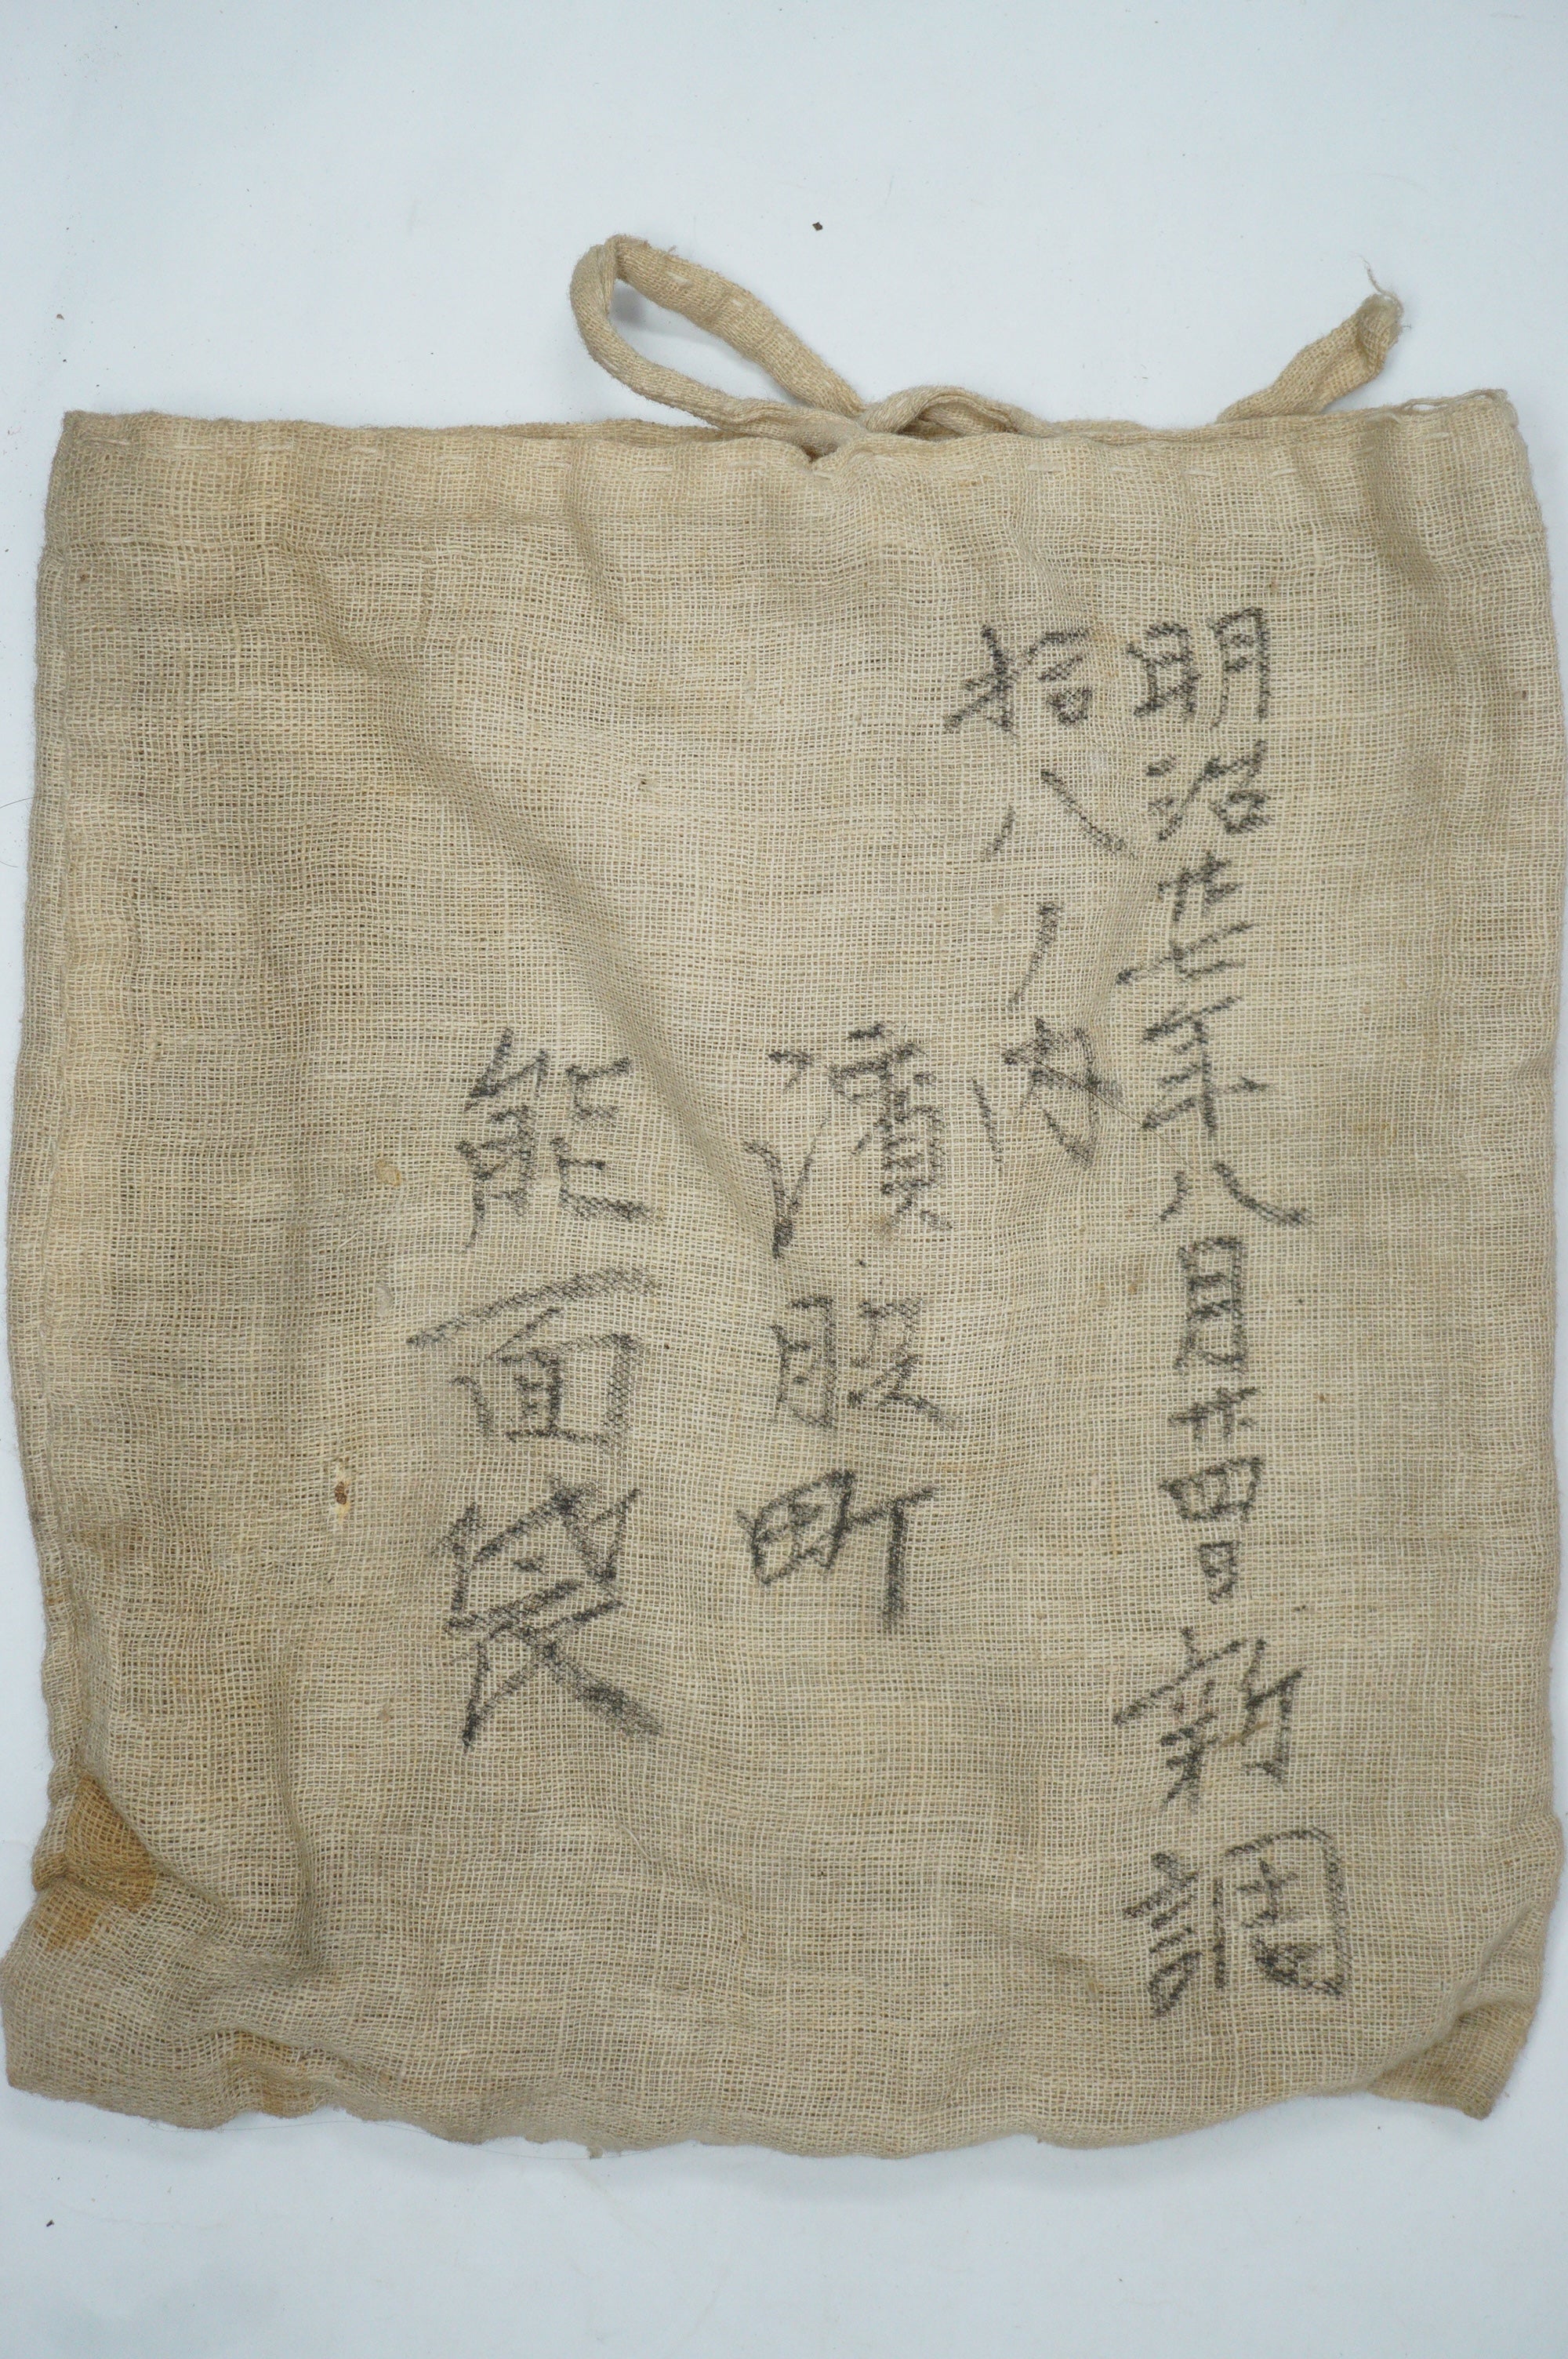 明治廿七年八月廿四日新調
拾八ノ内
濱股町
能面袋